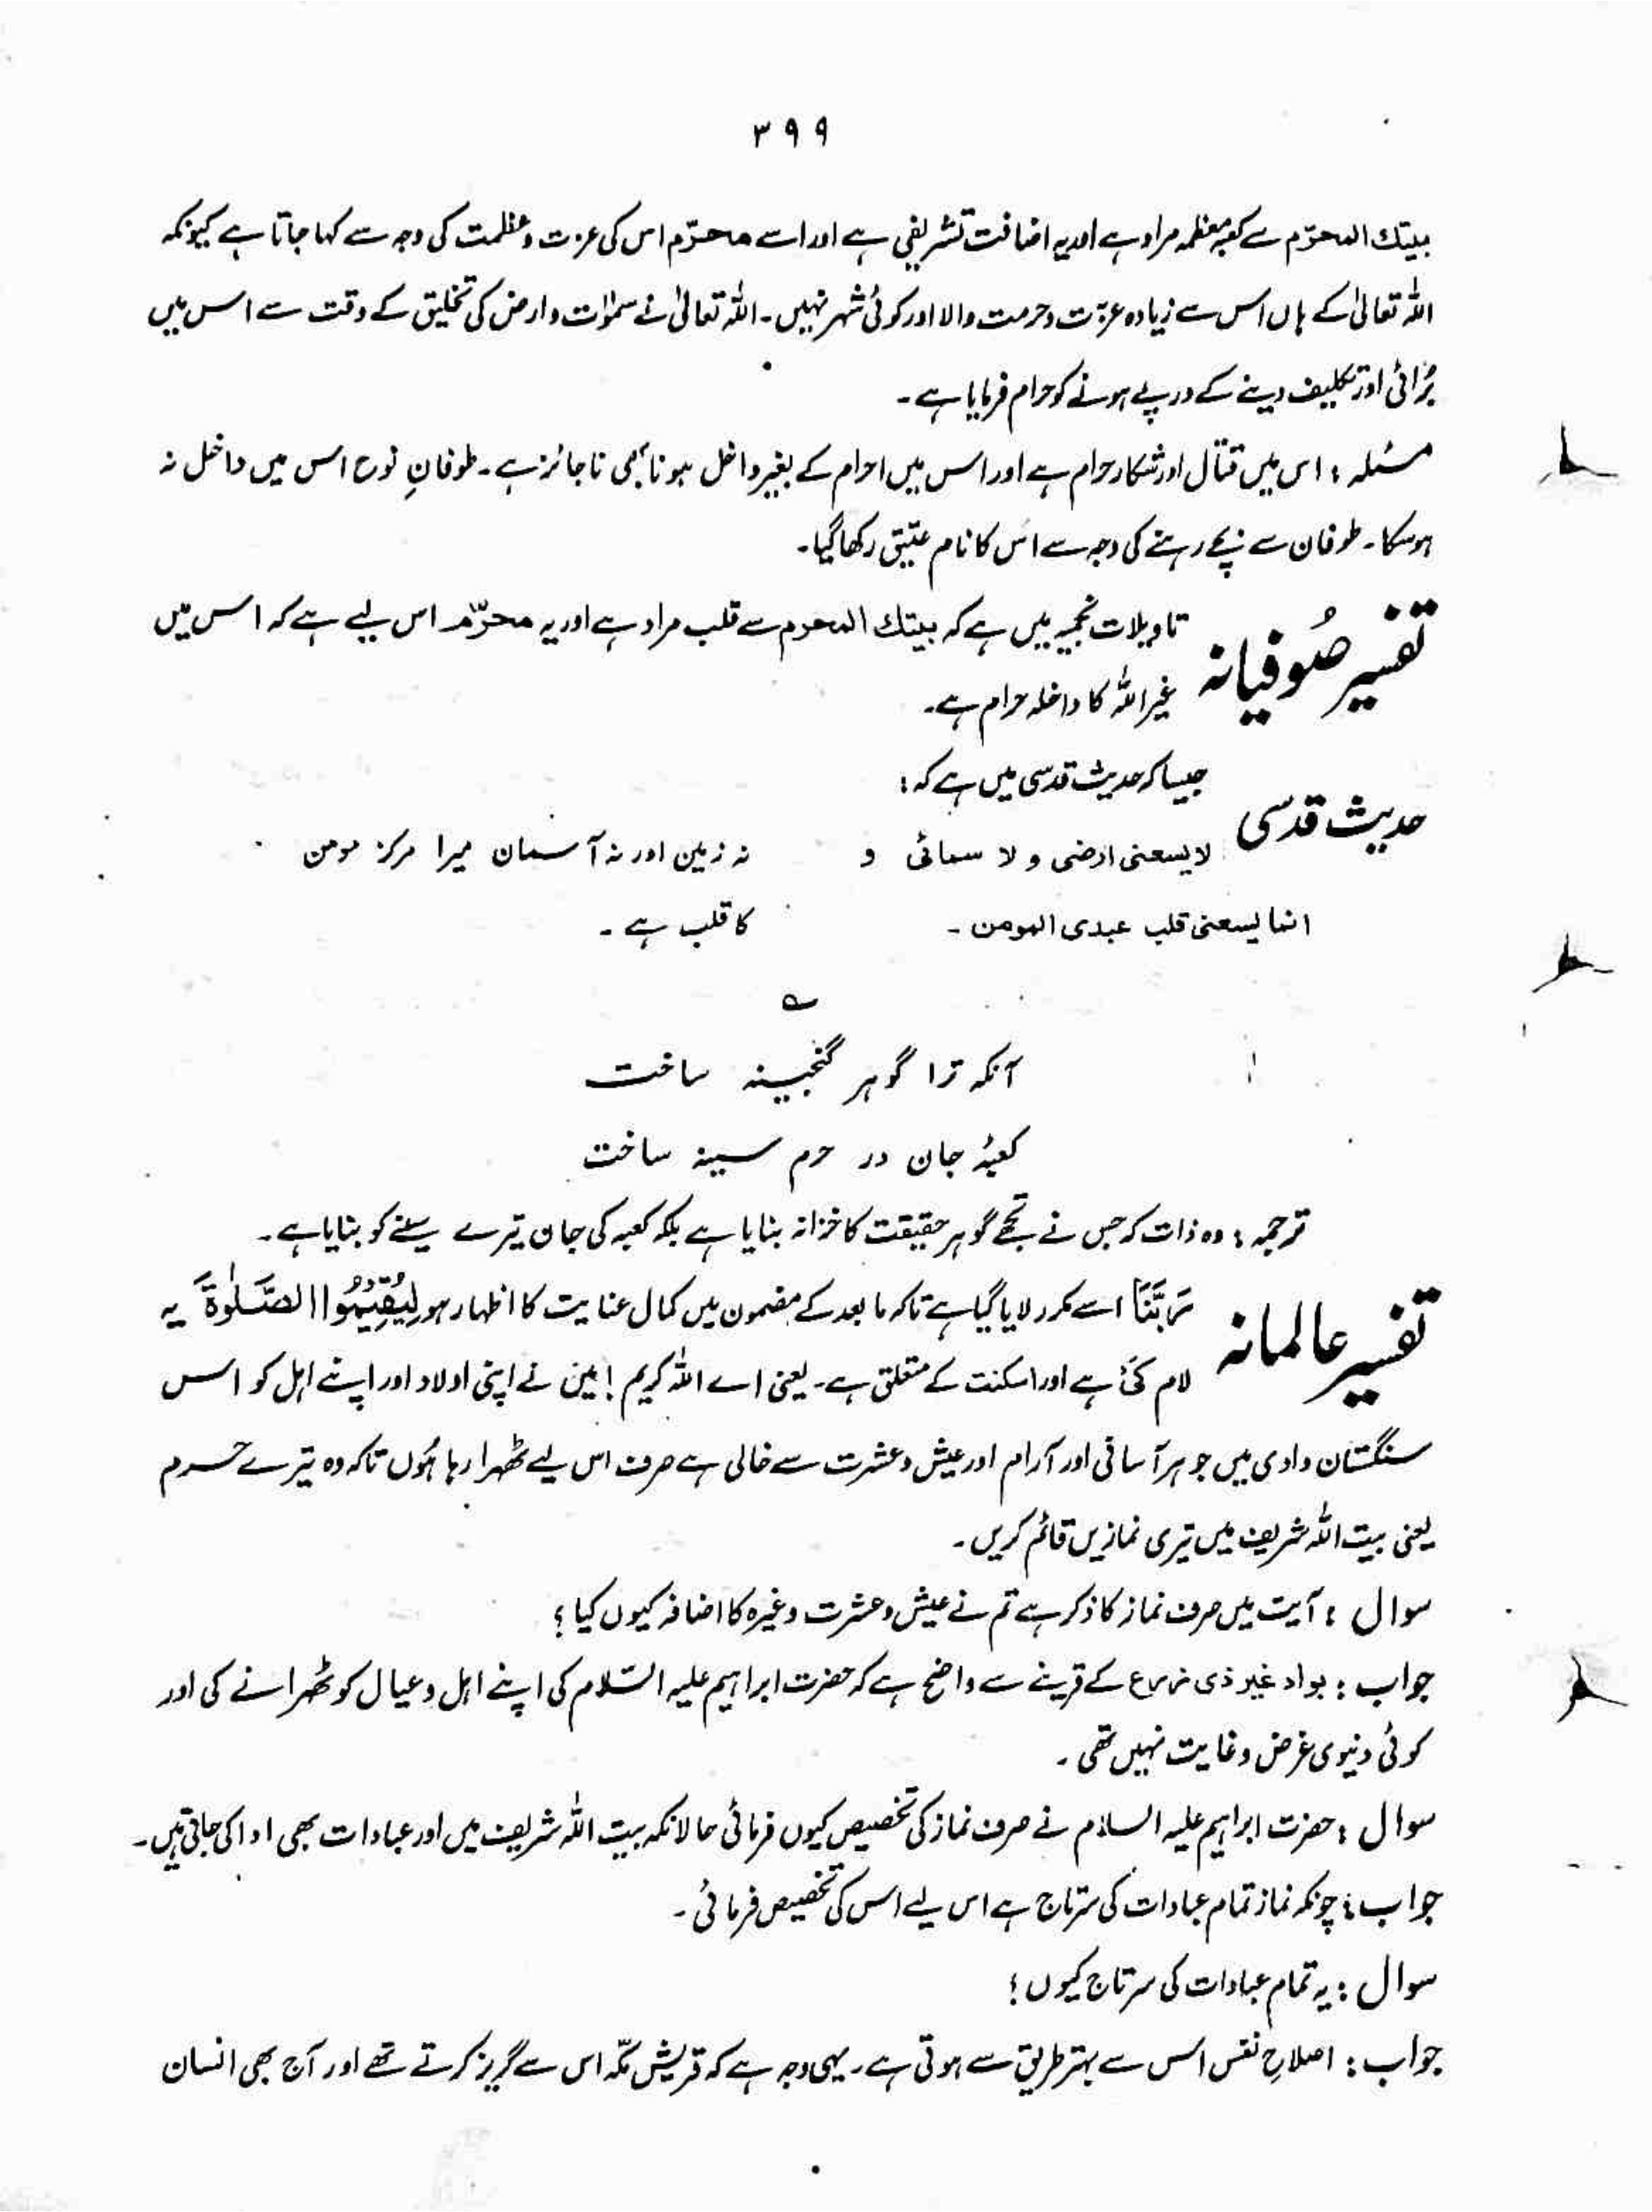 ۳۹۹
بیتك المحرّم سے کعبہ معظمہ مراد ہے اور یہ اضافت تشریفی ہے اور اسے محرّم اس کی عزت و عظمت کی وجہ سے کہا جاتا ہے کیونکہ
اللہ تعالیٰ کے ہاں اس سے زیادہ عزّت و حرمت والا اور کوئی شہر نہیں۔ اللہ تعالیٰ نے سمٰوات و ارض کی تخلیق کے وقت سے اس میں
بُرائی اور تکلیف دینے کے درپے ہونے کو حرام فرمایا ہے۔
مسئلہ : اس میں قتال اور شکار حرام ہے اور اس میں احرام کے بغیر داخل ہونا بھی ناجائز ہے۔ طوفانِ نوح اس میں داخل نہ
ہوسکا۔ طوفان سے بچے رہنے کی وجہ سے اس کا نام عتیق رکھا گیا۔
تفسیر صُوفیانہ تاویلات نجمیہ میں ہے کہ بیتك المحرم سے قلب مراد ہے اور یہ محرّم اس لیے ہے کہ اس میں
غیر اللہ کا داخلہ حرام ہے۔
حدیث قدسی جیسا کہ حدیث قدسی میں ہے کہ :
لا یسعنی ارضی و لا سمائی و نہ زمین اور نہ آسمان میرا مرکز مومن
انما یسعنی قلب عبدی المومن ۔ کا قلب ہے ۔
؎
آنکہ ترا گوہر گنجینہ ساخت
کعبۂ جان در حرم سینہ ساخت
ترجمہ : وہ ذات کہ جس نے تجھے گوہر حقیقت کا خزانہ بنایا ہے بلکہ کعبہ کی جان تیرے سینے کو بنایا ہے ۔
تفسیر عالمانہ رَبَّنَا اسے مکرر لایا گیا ہے تاکہ ما بعد کے مضمون میں کمال عنایت کا اظہار ہو لِیُقِیْمُوا الصَّلٰوةَ یہ
لام کَیْ ہے اور اسکنت کے متعلق ہے۔ یعنی اے اللہ کریم ! میں نے اپنی اولاد اور اپنے اہل کو اس
سنگستان وادی میں جو ہر آسائی اور آرام اور عیش و عشرت سے خالی ہے صرف اس لیے ٹھہرا رہا ہُوں تاکہ وہ تیرے حرم
یعنی بیت اللہ شریف میں تیری نمازیں قائم کریں ۔
سوال : آیت میں صرف نماز کا ذکر ہے تم نے عیش و عشرت وغیرہ کا اضافہ کیوں کیا ؟
جواب : بواد غیر ذی زرع کے قرینے سے واضح ہے کہ حضرت ابراہیم علیہ السّلام کی اپنے اہل و عیال کو ٹھہرانے کی اور
کوئی دنیوی غرض و غایت نہیں تھی ۔
سوال : حضرت ابراہیم علیہ السلام نے صرف نماز کی تخصیص کیوں فرمائی حالانکہ بیت اللہ شریف میں اور عبادات بھی ادا کی جاتی ہیں۔
جواب : چونکہ نماز تمام عبادات کی سرتاج ہے اس لیے اس کی تخصیص فرمائی ۔
سوال : یہ تمام عبادات کی سرتاج کیوں ؟
جواب : اصلاحِ نفس اس سے بہتر طریق سے ہوتی ہے ۔ یہی وجہ ہے کہ قریش مکّہ اس سے گریز کرتے تھے اور آج بھی انسان